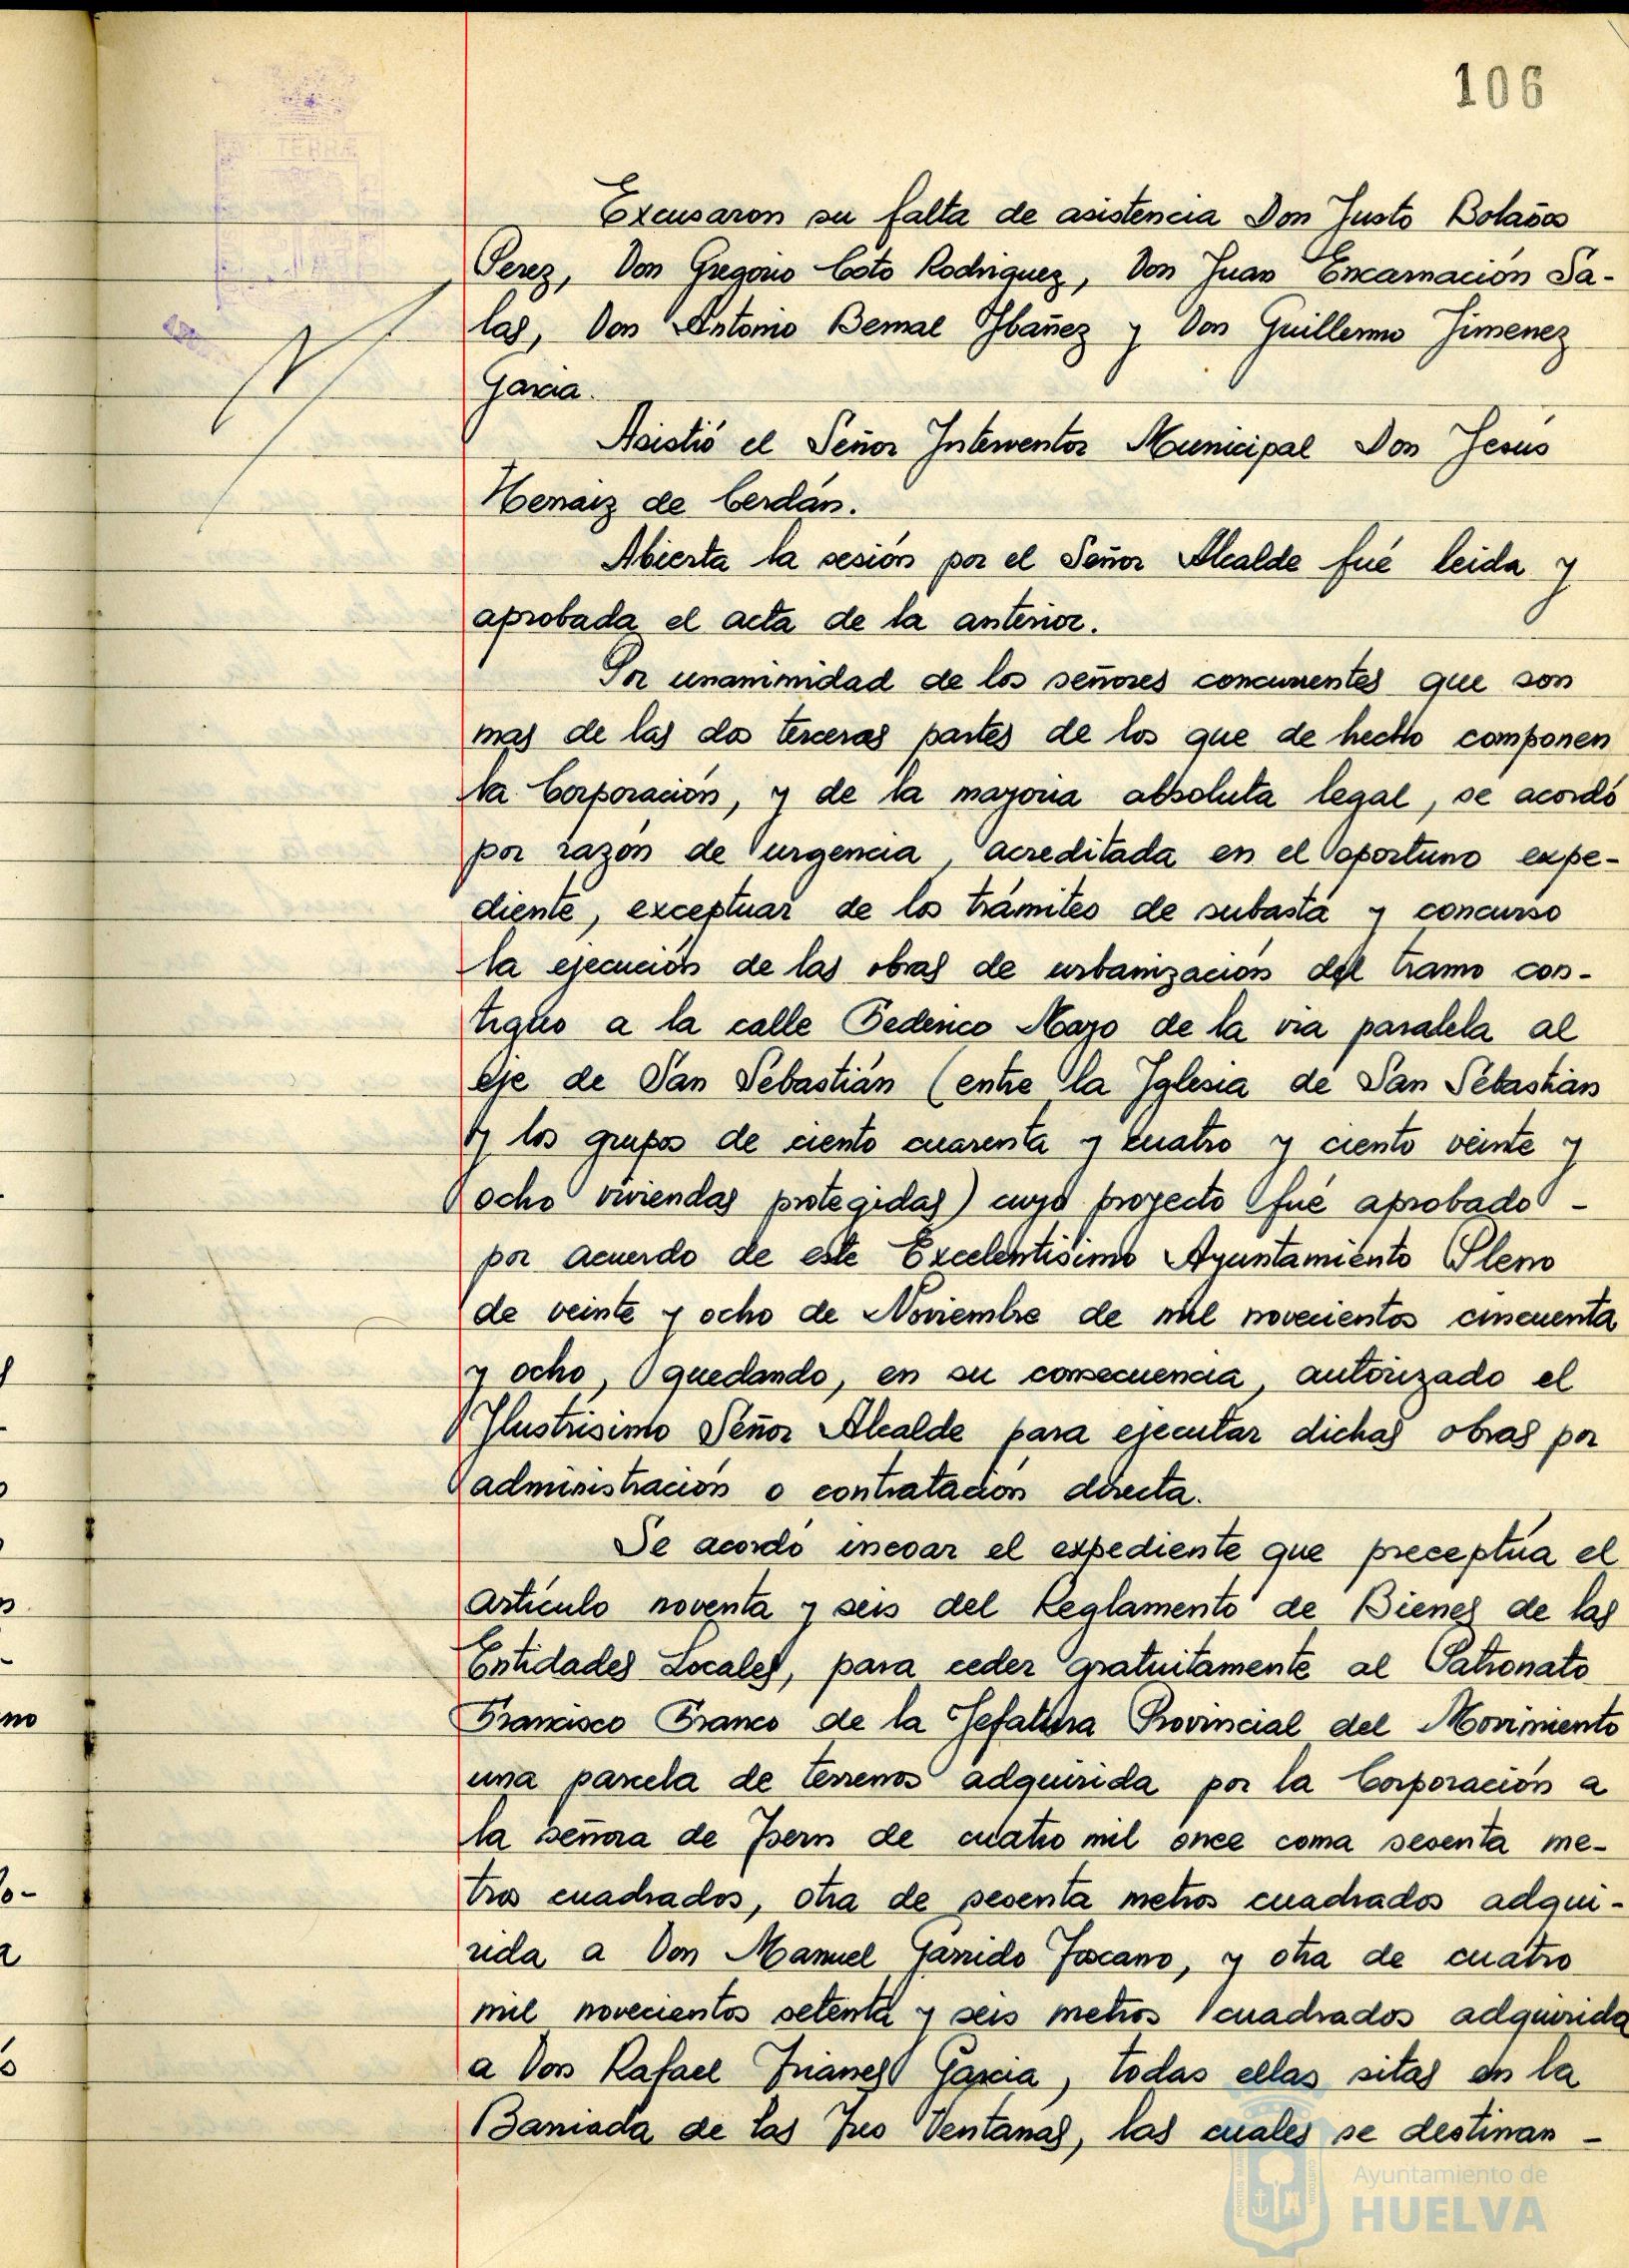 106
Excusaron su falta de asistencia Don Justo Bolaños
Perez, Don Gregorio Coto Rodriguez, Don Juan Encarnación Sa-
las, Don Antonio Bernal Ybañez y Don Guillermo Jimenez
Garcia.
Asistió el Señor Interventor Municipal Don Jesús
Hernaiz de Cerdán.
Abierta la sesión por el Señor Alcalde fué leida y
aprobada el acta de la anterior.
Por unanimidad de los señores concurrentes que son
mas de las dos terceras partes de los que de hecho componen
la Corporación, y de la mayoria absoluta legal, se acordó
por razón de urgencia, acreditada en el oportuno expe-
diente, exceptuar de los trámites de subasta y concurso
la ejecución de las obras de urbanización del tramo con-
tiguo a la calle Federico Mayo de la via paralela al
eje de San Sebastián (entre la Iglesia de San Sebastián
y los grupos de ciento cuarenta y cuatro y ciento veinte y
ocho viviendas protegidas) cuyo proyecto fué aprobado -
por acuerdo de este Excelentísimo Ayuntamiento Pleno
de veinte y ocho de Noviembre de mil novecientos cincuenta
y ocho, quedando, en su consecuencia, autorizado el
Ilustrísimo Señor Alcalde para ejecutar dichas obras por
administración o contratación directa.
Se acordó incoar el expediente que preceptúa el
artículo noventa y seis del Reglamento de Bienes de las
Entidades Locales, para ceder gratuitamente al Patronato
Francisco Franco de la Jefatura Provincial del Movimiento
una parcela de terrenos adquirida por la Corporación a
la señora de Isern de cuatro mil once coma sesenta me-
tros cuadrados, otra de sesenta metros cuadrados adqui-
rida a Don Manuel Garrido Toscano, y otra de cuatro
mil novecientos setenta y seis metros cuadrados adquirida
a Don Rafael Trianes Garcia, todas ellas sitas en la
Barriada de las Tres Ventanas, las cuales se destinan -
Ayuntamiento de
HUELVA